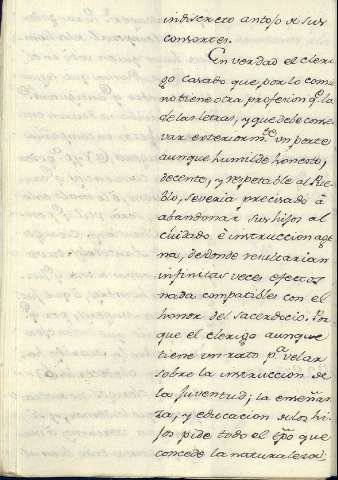 indiscreto antojo de sus
consortes.
En verdad el cleri-
go casado que, por lo comun
no tiene otra profesion q.e la
de las letras, y que debe conser-
var exteriorm.te un porte
aunque humilde honesto,
decente, y respetable al Pue-
blo, se veria precisado á
abandonar sus hijos al
cuidado é instruccion age-
na; de donde resultarian
infinitas veces efectos
nada compatibles con el
honor del sacerdocio. Por-
que el clerigo aunque
tiene un rato p.a velar
sobre la instruccion de
la juventud; la enseñan-
za, y educacion de los hi-
jos pide todo el tpō que
concede la naturaleza: